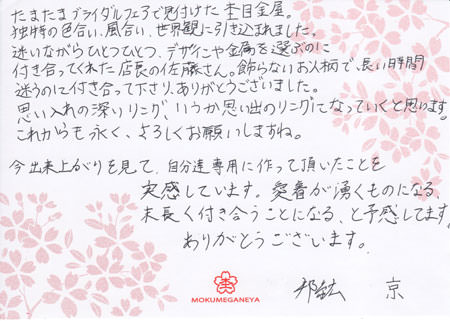 たまたまブライダルフェアで見付けた杢目金屋。
独特の色合い、風合い、世界観に引き込まれました。
迷いながらひとつひとつ、デザインや金属を選ぶのに
付き合ってくれた店長の佐藤さん。飾らないお人柄で、長い時間
迷うのに付き合って下さり、ありがとうございました。
思い入れの深いリング、いつか思い出のリングになっていくと思います。
これからも永く、よろしくお願いしますね。
今出来上がりを見て、自分達専用に作って頂いたことを
実感しています。愛着が湧くものになる、
末長く付き合うことになる、と予感してます。
ありがとうございます。
MOKUMEGANEYA
京